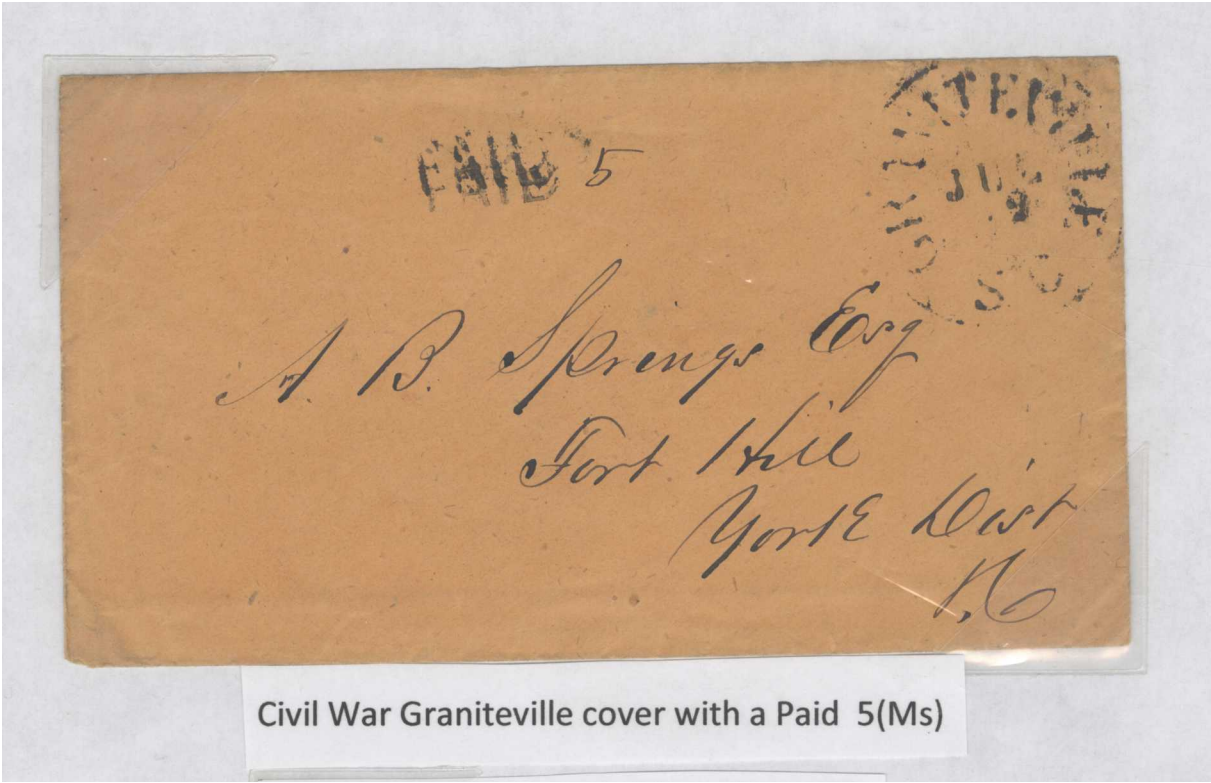 GRANITEVILLE
S.C.
PAID 5
A. B. Springs Esq
Fort Hill
York Dist
S.C
Civil War Graniteville cover with a Paid 5(Ms)